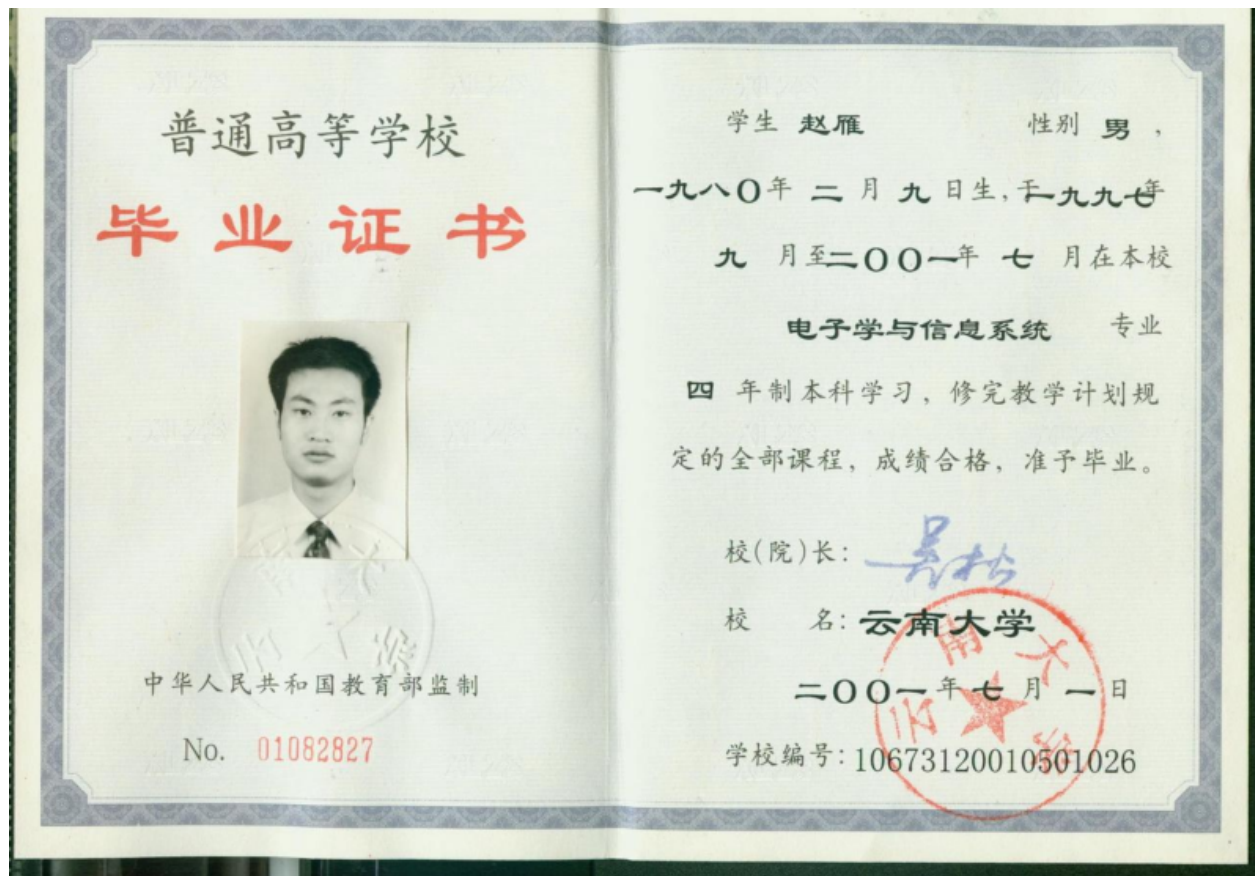 普通高等学校
毕业证书
中华人民共和国教育部监制
No. 01082827
学生 赵雁 性别 男，
一九八〇年 二 月 九 日生，于一九九七年
九 月至二〇〇一年 七 月在本校
电子学与信息系统 专业
四 年制本科学习，修完教学计划规
定的全部课程，成绩合格，准予毕业。
校(院)长：吴松
校 名：云南大学
二〇〇一年 七 月 一 日
学校编号：10673120010501026
云南大学
云南大学